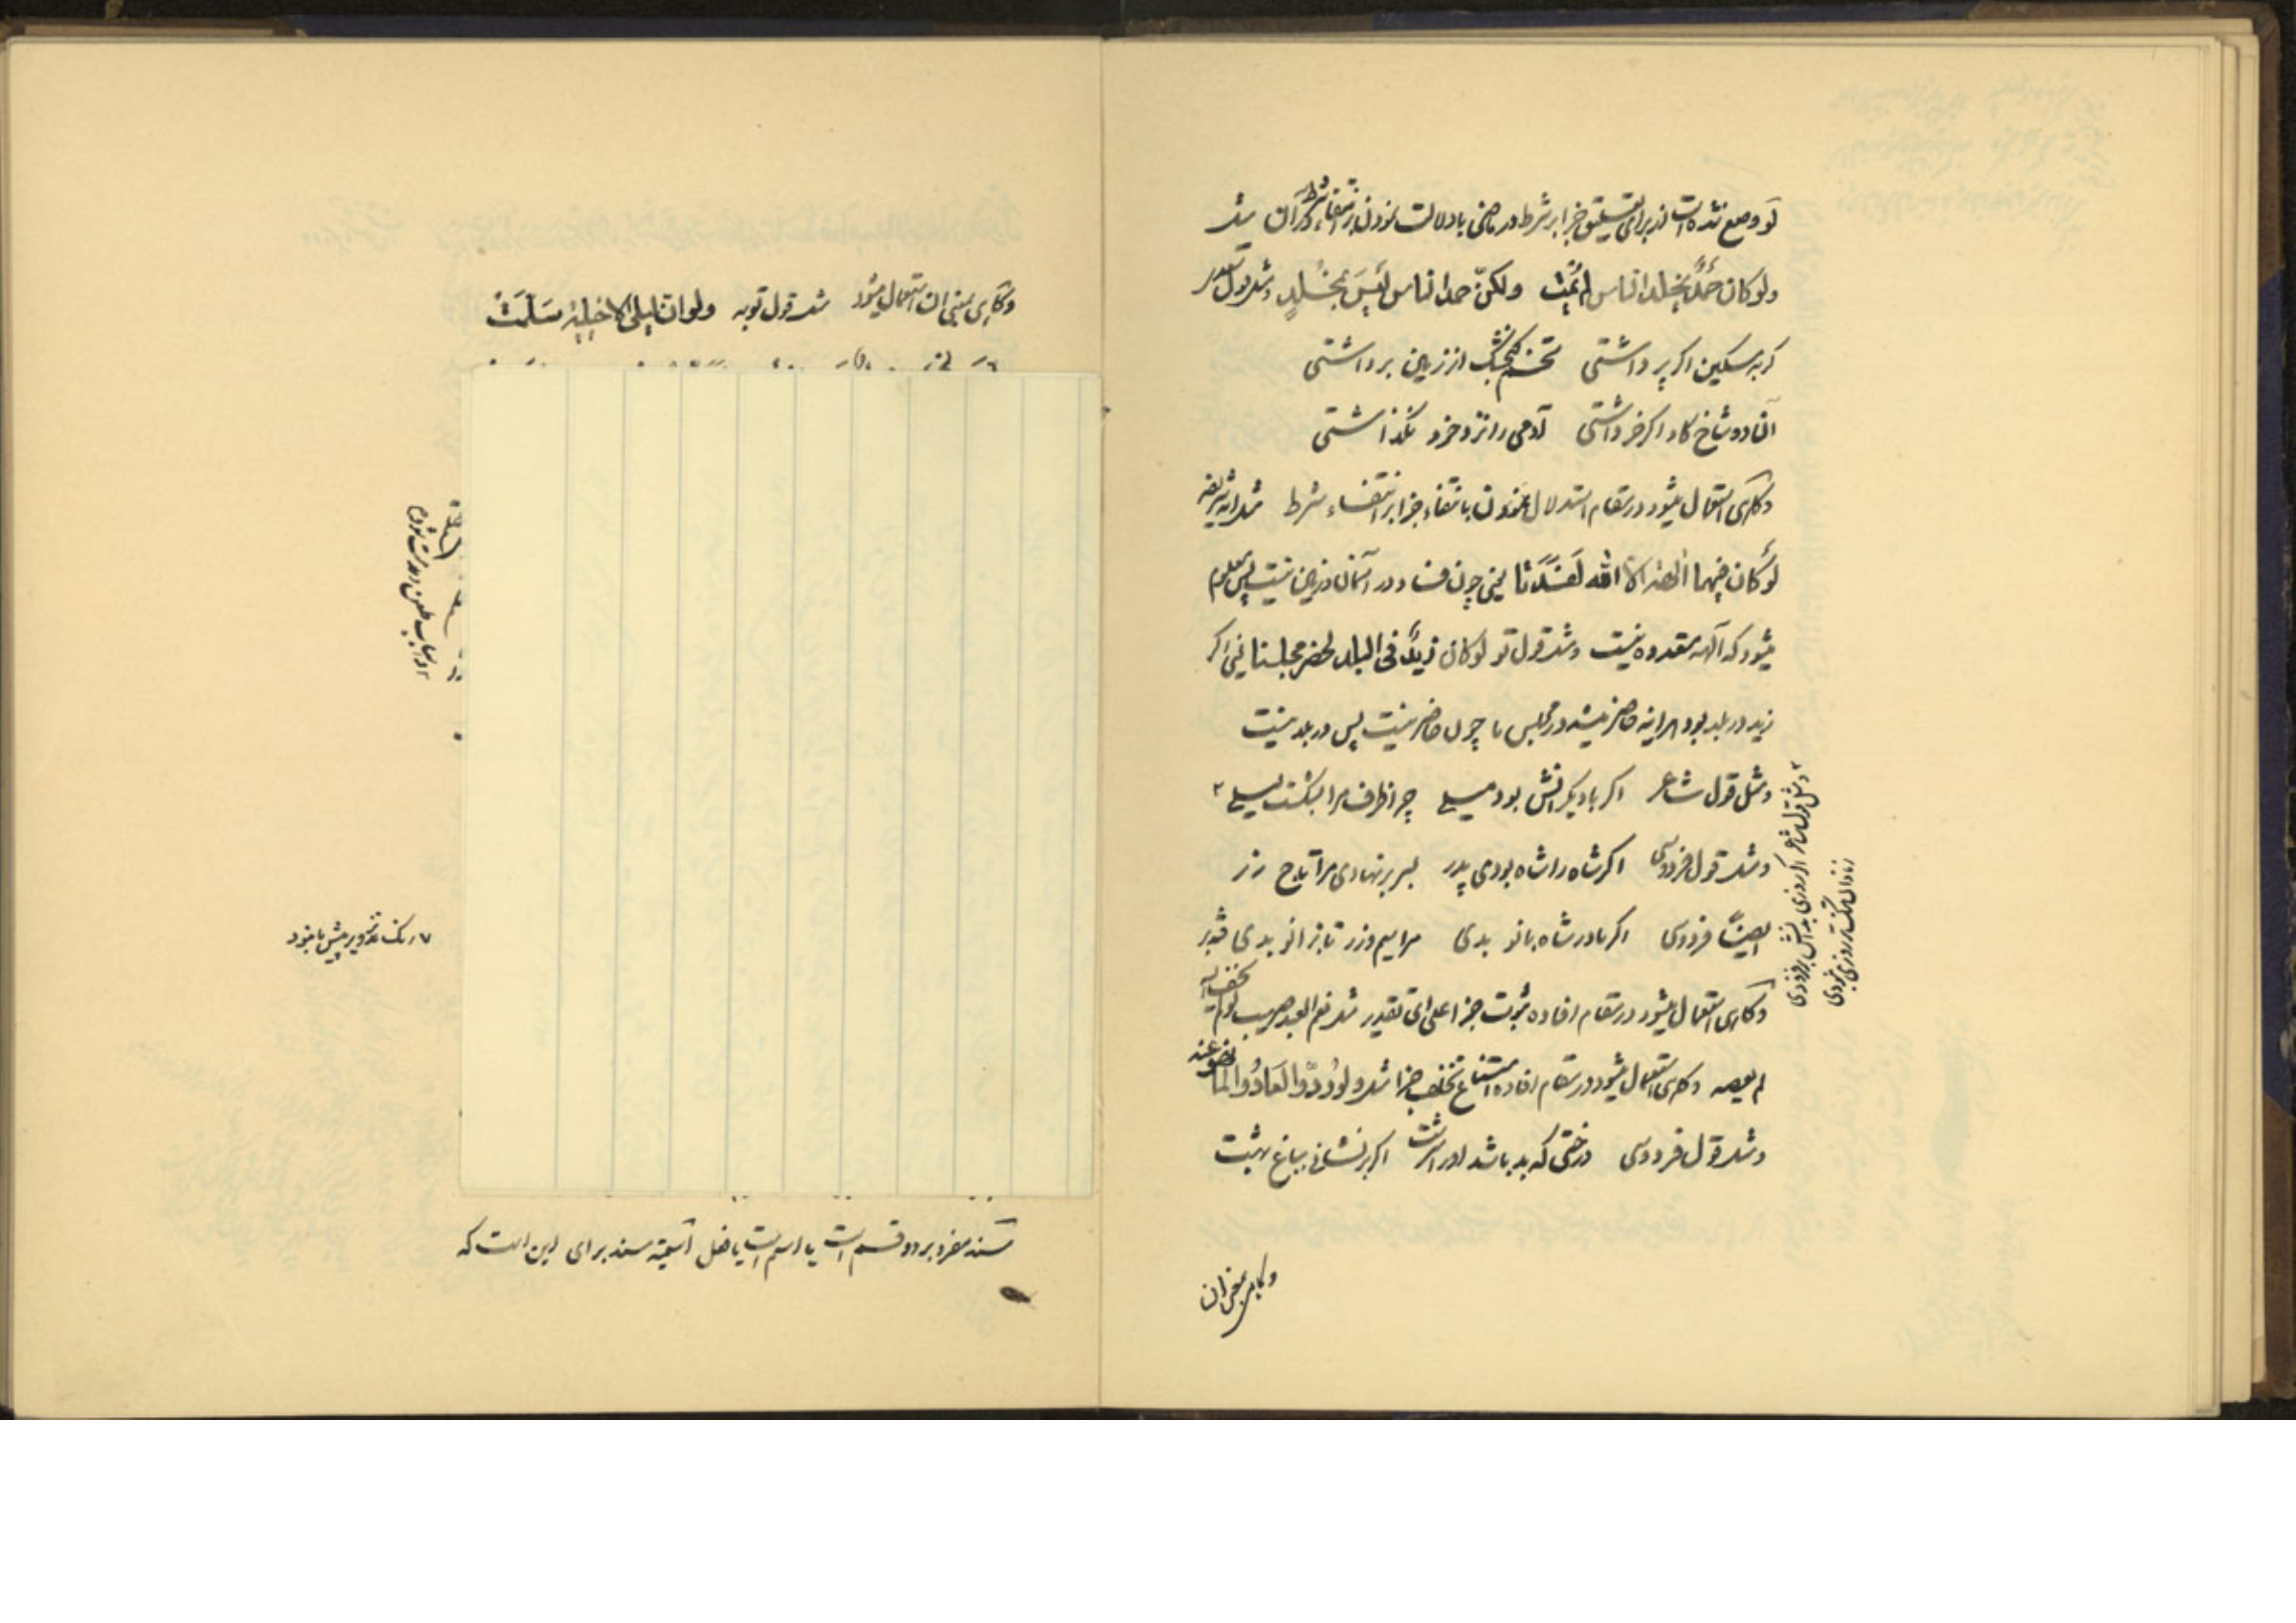 لو وضع شده است از برای تعلیق جزا بر شرط در ماضی با دلالت نمودن بر انتفاء شرط در آن مثل
ولو کان حمدٌ یخلد الناس لم تمت ولکنّ حمد الناس لَیسَ بمُخلدٍ و مثل قول سعدی
کربه مسکین اکر پر داشتی تخم کنجشک از زمین برداشتی
آن دو شاخ کاو اکر خر داشتی آدمی را نزد خود نکذاشتی
و کاهی استعمال میشود در مقام استدلال نمودن بانتفاء جزا بر انتفاء شرط مثل آیه شریفه
لَو کان فیهما آلهة الا الله لَفَسَدَتا یعنی چون فساد در آسمان و زمین نیست پس معلوم
میشود که آلهه متعدده نیست و مثل قول تو لو کان زیدٌ فی البلد لحضر مجلسنا یعنی اکر
زید در بلد بود هرآینه حاضر میشد در مجلس ما چون حاضر نیست پس در بلد نیست
و مثل قول شاعر اکر با دیکرانش بود میلی چرا ظرف مرا بشکست لیلی ۲
و مثل قول فردوسی اکر شاه را شاه بودی پدر بسر بر نهادی مرا تاج زر
ایضاً فردوسی اکر مادر شاه بانو بدی مرا سیم و زر تا بزانو بدی
و کاهی استعمال میشود در مقام افاده ثبوت جزا علی ای تقدیر مثل نعم العبد صهیب لو لم یخف الله
لم یعصه و کاهی استعمال میشود در مقام افاده امتناع تخلف جزا مثل ولو رُدّوا لَعادُوا لِما نهوا عنه
و مثل قول فردوسی درختی که بد باشد او را سرشت اکر بر نشانی بباغ بهشت
۲ و مثل قول شاعر اکر روزی بدانش بر فزودی
ز نادان تنک تر روزی نبودی
و کاهی بمعنی ان
و کاهی بمعنی ان استعمال میشود مثل قول توبه ولو ان لیلی الاخیلیة سَلَّمَت
مسند مفرد بر دو قسم است یا اسم است یا فعل اسمیّة مسند برای این است که